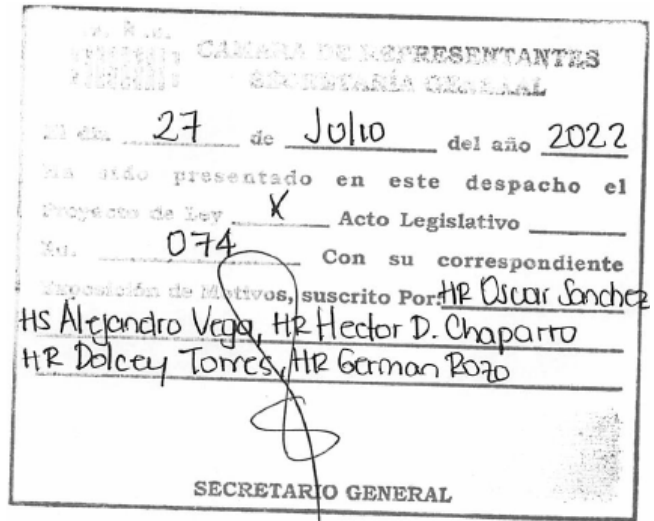 CAMARA DE REPRESENTANTES
SECRETARÍA GENERAL
El día 27 de Julio del año 2022
Ha sido presentado en este despacho el
Proyecto de Ley X Acto Legislativo
No. 074 Con su correspondiente
Exposición de Motivos, suscrito Por: HR Oscar Sanchez
HS Alejandro Vega, HR Hector D. Chaparro
HR Dolcey Torres, HR German Rozo
SECRETARIO GENERAL